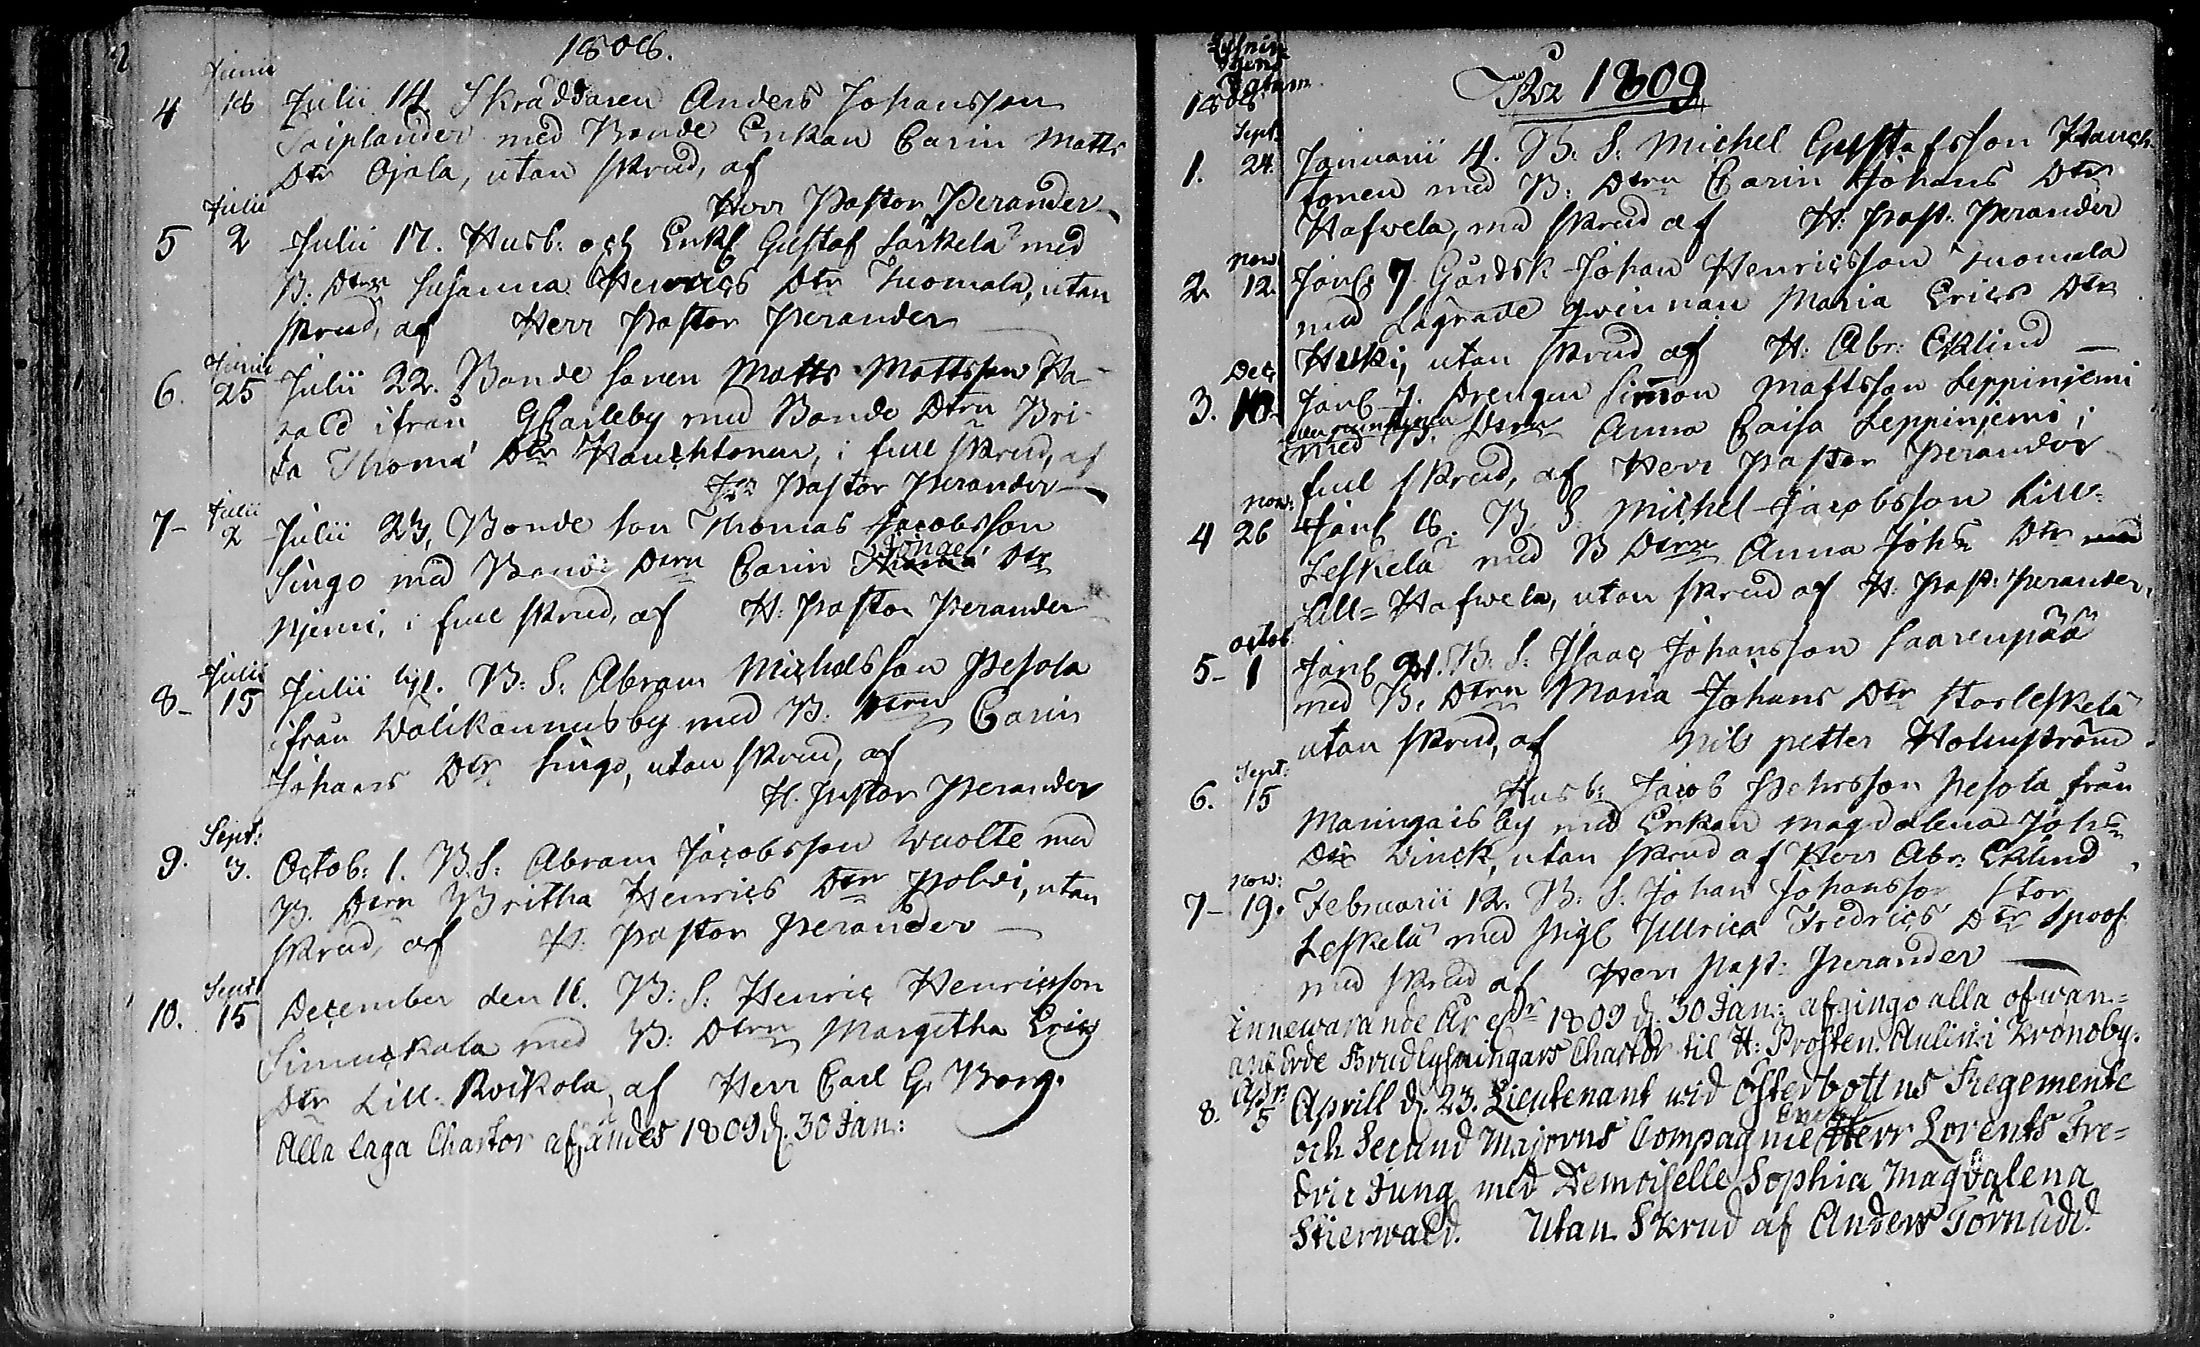 1808.
Junii
4 18 Julii 14 Skräddaren Anders Johansson
Saiplander med Bonde Enkan Carin Matts
Dtr Ojala, utan skrud, af
Herr Pastor Perander
Julii
5 2 Julii 17. Husb: och Enkl Gustaf Särkelä med
B: Dtrn Susanna Henrics Dtr Tuomala, utan
skrud, af Herr Pastor Perander
Junii
6. 25 Julii 22. Bonde sonen Matts Mattsson Ka-
ifrån GCarleby med Bonde Dtrn Bri-
ta Thomæ Dtr Kauchtonen, i full skrud, af
Hr Pastor Perander
Julii
7- 2 Julii 23, Bonde son Thomas Jacobsson
Singo med Bonde Dtrn Carin Dtr
Njemi, i full skrud, af H: Pastor Perander
Julii
8- 15 Julii 31. B: S: Abram Michelsson Pesola
ifrån Walikannus by med B: Dtrn Carin
Johans Dtr Singo, utan skrud, af
H. Pastor Perander
Sept:
9. 3. Octob: 1. B.S: Abram Jacobsson Wuolte med
B. Dtrn Britha Henrics Dtr Polwi, utan
skrud, af H: Pastor Perander
Sept:
10. 15 December den 11. B: S: Henric Henricsson
Simuckala med B: Dtrn Margetha Erics
Dtr Lill-Roikola, af Herr Carl G. Borg.
Alla laga Chartor afsändes 1809 d. 30 Jan:
Lysnin-
gens
Datum
1808
År 1809
Sept:
1. 24. Januarii 4. B: S: Michel Gustafsson Kauch-
tonen med B: Dtrn Carin Johans Dtr
Hafwela, med skrud af H: Past: Perander
Nov
2. 12. Janu 7 Gårdsk Johan Henricsson Tuomala
med Lägrade qwinnan Maria Erics Dtr
Huki, utan skrud af H: Abr: Ecklind
Dec
3. 18 Janu 7. Drengen Simon Mattsson Leppinjemi
med B: Dtrn Anna Caisa Leppinjemi, i
full skrud, af Herr Pastor Perander
Nov:
4 26 Janu 8. B. S. Michel Jacobsson Lill-
Leskelä med B Dtrn Anna Johs Dtr med
Lill-Hafwela, utan skrud af H. Past: Perander,
Octob
5- 1 Janu 21. B. S. Isaac Johansson Saarenpää
med B. Dtrn Maria Johans Dtr Storleskelä
utan skrud, af Nils Petter Holmström.
Sept:
6. 15 Husb: Jacob Pehrsson Pesola från
Maningais by med Enkan Magdalena Johs
Dtr Winck, utan skrud af Herr Abr: Eklind
Nov:
7- 19. Februarii 12. B. S. Johan Johansson Stor
Leskelä med Pigl Ullrica Fredrics Dtr Spoof
med skrud af Herr Past: Perander
Innewarande År 1809 d. 30 Jan: afgingo alla ofwan-
anförde Brudlysningars Chartor til H: Prosten Aulin i Kronoby.
Apr:
8. 5 Aprill d. 23. Lieutenant wid Österbottns Regemente
och Secund Majorns Compagnie Herr Lorents Fre-
dric Jung med Demoiselle Sophia Magdalena
Stierwald. Utan Skrud af Anders Törnudd.